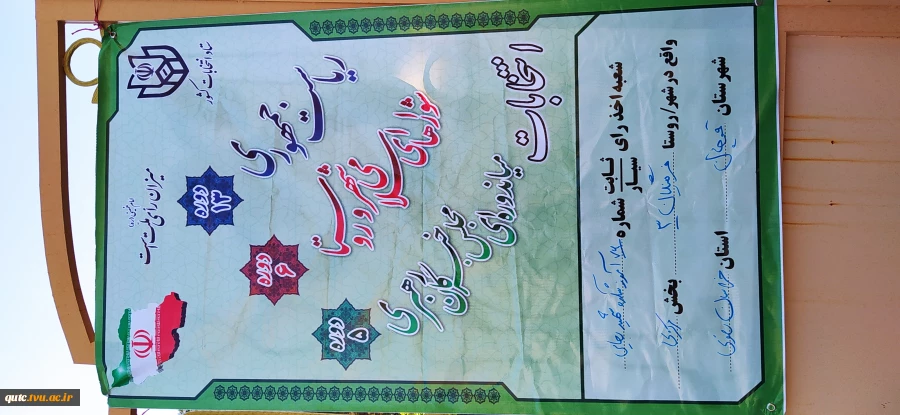 ستاد انتخابات کشور
میزان رأی ملت است
انتخابات
ریاست جمهوری
دوره ۱۳
شوراهای اسلامی شهر و روستا
دوره ۶
میاندوره‌ای مجلس خبرگان رهبری
دوره ۵
شعبه اخذ رای ثابت سیار شماره
واقع در شهر/روستا بخش مرکزی
شهرستان قوچان استان خراسان رضوی
qutc.tvu.ac.ir